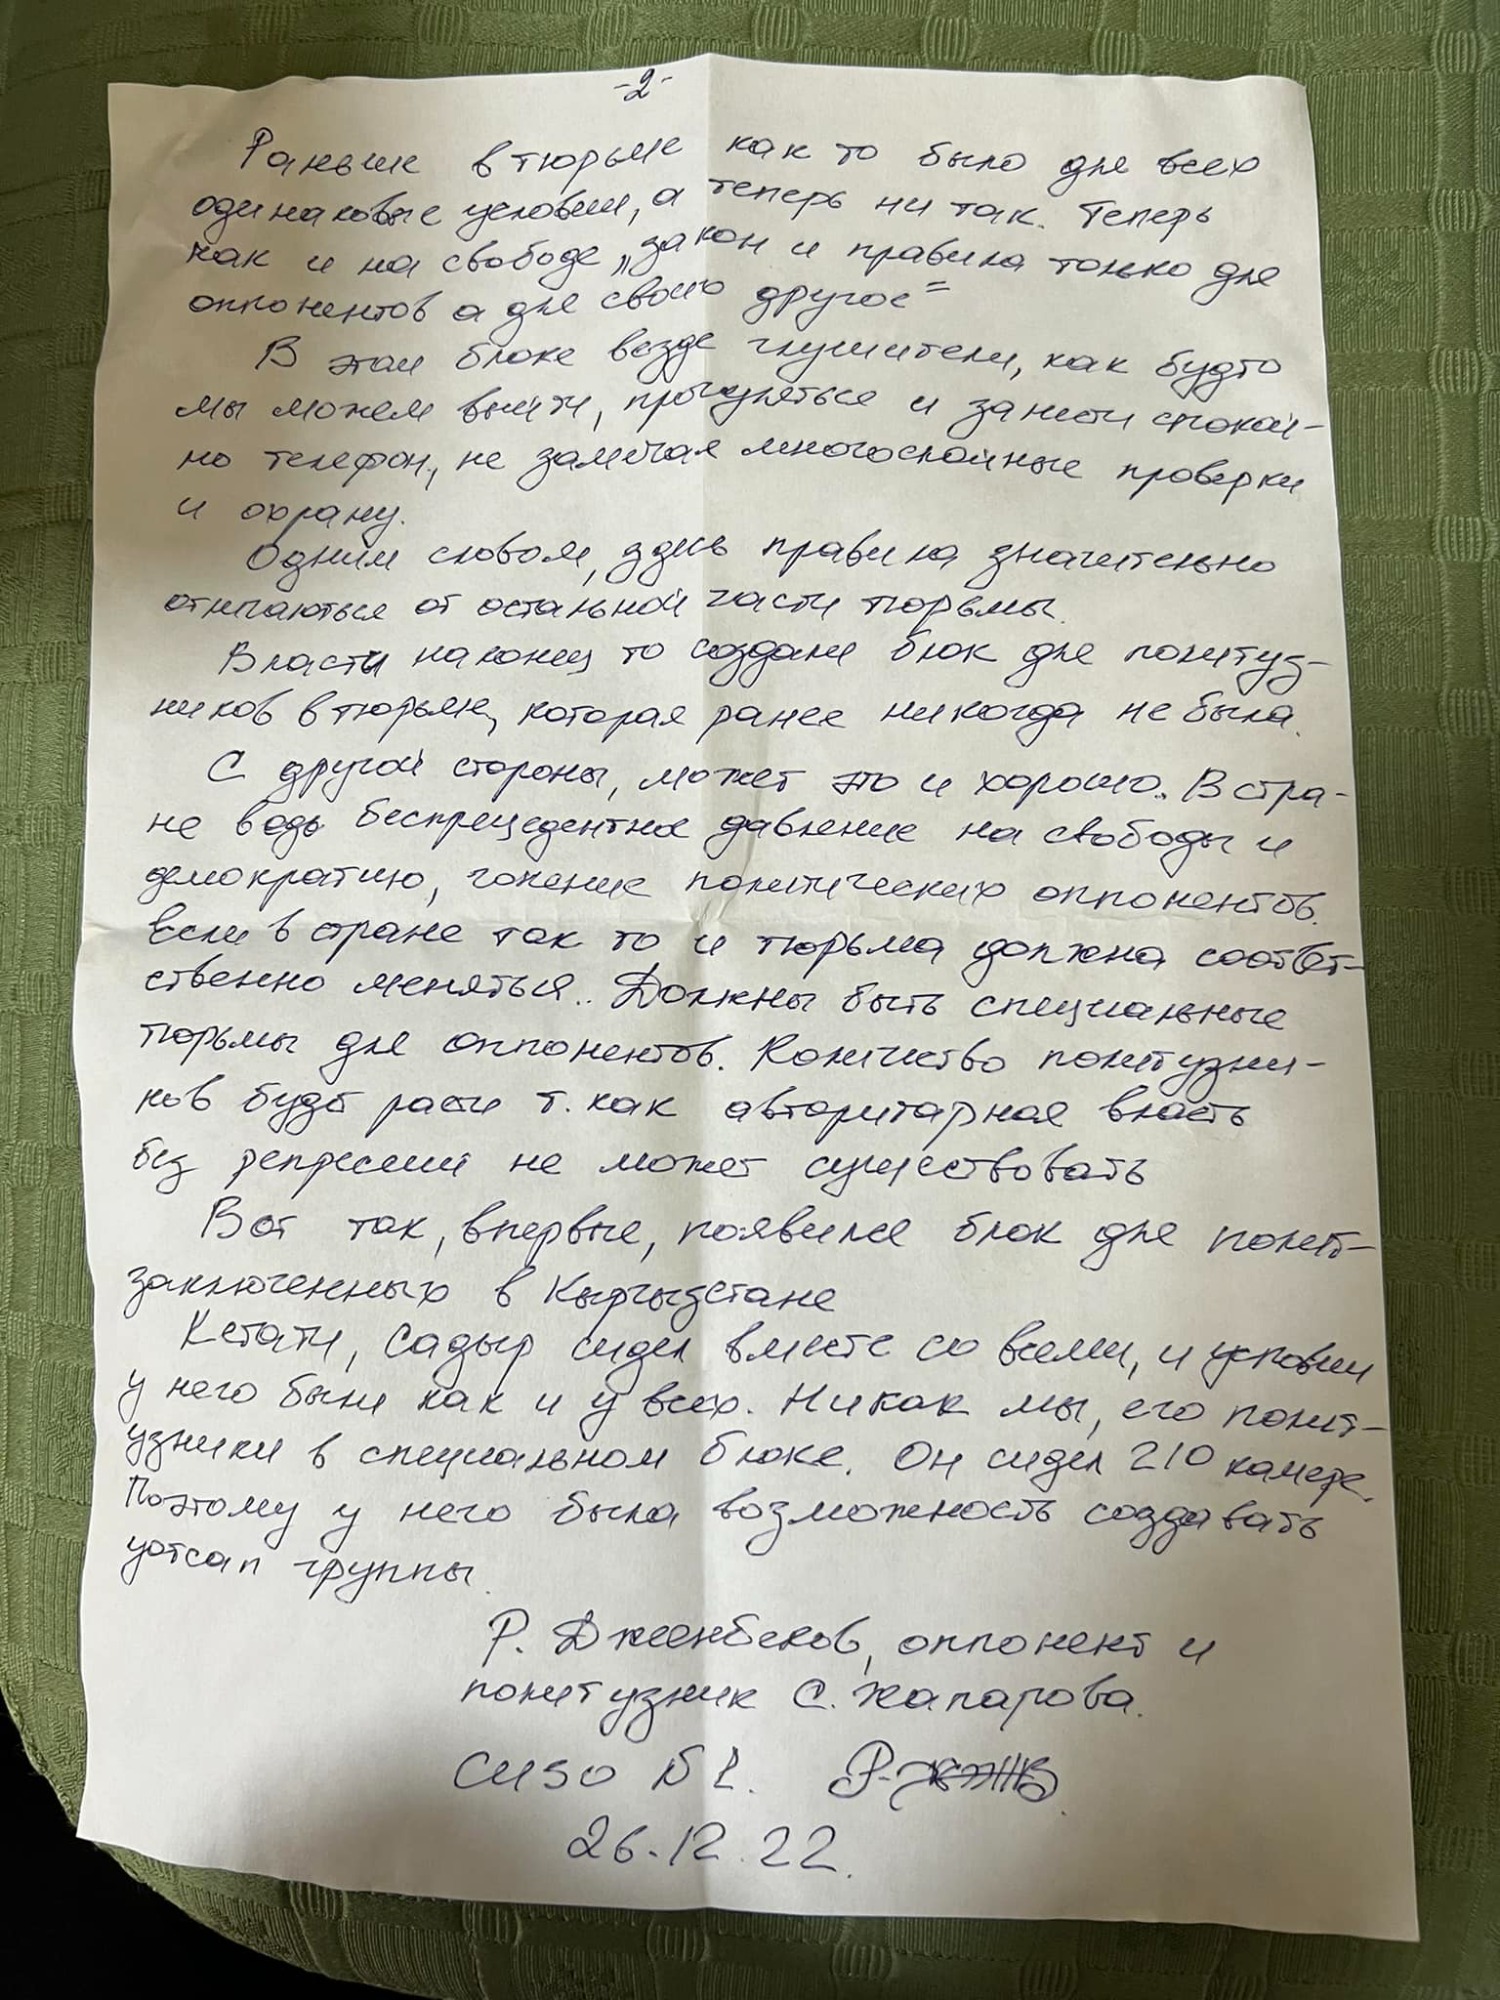 -2-
Раньше в тюрьме как то было для всех
одинаковые условии, а теперь ни так. Теперь
как и на свободе „закон и правила только для
оппонентов а для своих другое"
В этом блоке везде глушители, как будто
мы можем выйти, прогуляться и занести спокой-
но телефон, не замечая многослойные проверки
и охрану.
Одним словом, здесь правила значительно
отличаються от остальной части тюрьмы.
Власти наконец то создали блок для политуз-
ников в тюрьме, которая ранее никогда не была.
С другой стороны, может это и хорошо. В стра-
не ведь беспрецедентное давление на свободы и
демократию, гонение политических оппонентов.
Если в стране так то и тюрьма должна соответ-
ственно меняться.. Должны быть специальные
тюрьмы для оппонентов. Количество политузни-
ков будет расти т. как авторитарная власть
без репрессий не может существовать
Вот так, впервые, появился блок для полит-
заключенных в Кыргызстане
Кстати, Садыр сидел вместе со всеми, и условии
у него были как и у всех. Никак мы, его полит-
узники в специальном блоке. Он сидел 210 камере.
Поэтому у него была возможность создавать
уотсап группы.
Р. Джеенбеков, оппонент и
политузник С. Жапарова.
СИЗО №1.
26.12.22.